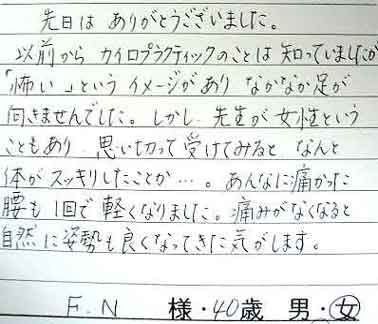 先日は ありがとうございました。
以前から カイロプラクティックのことは 知っていましたが
「怖い」という イメージがあり なかなか足が
向きませんでした。しかし、先生が女性という
こともあり 思い切って 受けてみると なんと
体が スッキリしたことか…。あんなに痛かった
腰も 1回で 軽くなりました。痛みがなくなると
自然に姿勢も良くなってきた気がします。
F.N 様・40歳 男・女